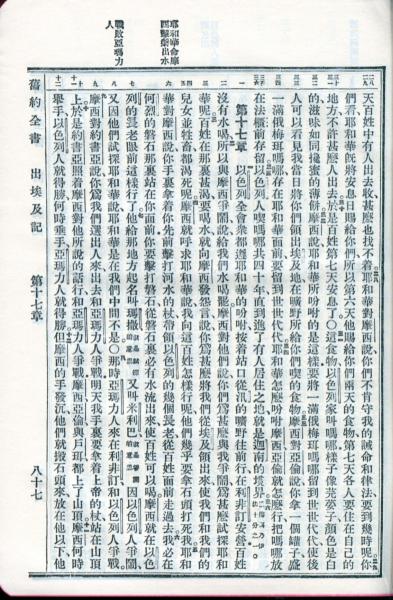 耶和華命摩
西擊磐出水
戰敗亞瑪力
天百姓中有人出去收甚麼也找不着耶和華對摩西說你們不肯守我的誡命和律法要到幾時呢你
們看耶和華既將安息日賜給你們所以第六天他賜給你們兩天的食物第七天各人要住在自己的
地方不許甚麼人出去於是百姓第七天安息了○這食物以色列家叫嗎哪樣子像芫荽子顏色是白
的滋味如同攙蜜的薄餅摩西說耶和華所吩咐的是這樣要將一滿俄梅珥嗎哪留到世世代代使後
人可以看見我當日將你們領出埃及地在曠野所給你們喫的食物摩西對亞倫說你拿一個罐子盛
一滿俄梅珥嗎哪存在耶和華面前要留到世世代代耶和華怎麼吩咐摩西亞倫就怎麼行把嗎哪放
在法櫃前存留以色列人喫嗎哪共四十年直到進了有人居住之地就是迦南的境界
第十七章 以色列全會衆都遵耶和華的吩咐按着站口從汛的曠野往前行在利非訂安營百姓
沒有水喝所以與摩西爭鬧說給我們水喝罷摩西對他們說你們爲甚麼與我爭鬧爲甚麼試探耶和
華呢百姓在那裏甚渴要喝水就向摩西發怨言說你爲甚麼將我們從埃及領出來使我們和我們的
兒女並牲畜都渴死呢摩西就呼求耶和華說我向這百姓怎樣行呢他們幾乎要拿石頭打死我耶和
華對摩西說你手裏拿着你先前擊打河水的杖帶領以色列的幾個長老從百姓面前走過去我必在
何烈的磐石那裏站在你面前你要擊打磐石從磐石裏必有水流出來使百姓可以喝摩西就在以色
列的長老眼前這樣行了他給那地方起名叫瑪撒 又叫米利巴 因以色列人爭鬧
又因他們試探耶和華說耶和華是在我們中間不是○那時亞瑪力人來在利非訂和以色列人爭戰
摩西對約書亞說你爲我們選出人來出去和亞瑪力人爭戰明天我手裏要拿着上帝的杖站在山頂
上於是約書亞照着摩西對他所說的話行和亞瑪力人爭戰摩西亞倫與戶珥都上了山頂摩西何時
舉手以色列人就得勝何時垂手亞瑪力人就得勝但摩西的手發沉他們就搬石頭來放在他以下他
舊約全書 出埃及記 第十七章 八十七